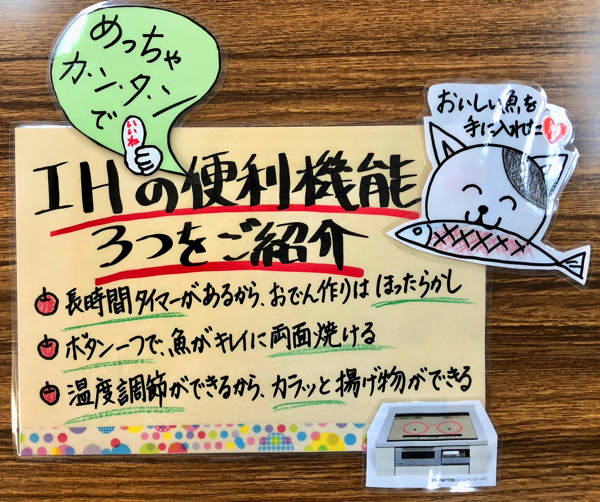 めっちゃ
カ・ン・タ・ン
で
いいね
おいしい魚を
手に入れた
IHの便利機能
3つをご紹介
長時間タイマーがあるから、おでん作りはほったらかし
ボタン一つで、魚がキレイに両面焼ける
温度調節ができるから、カラッと揚げ物ができる